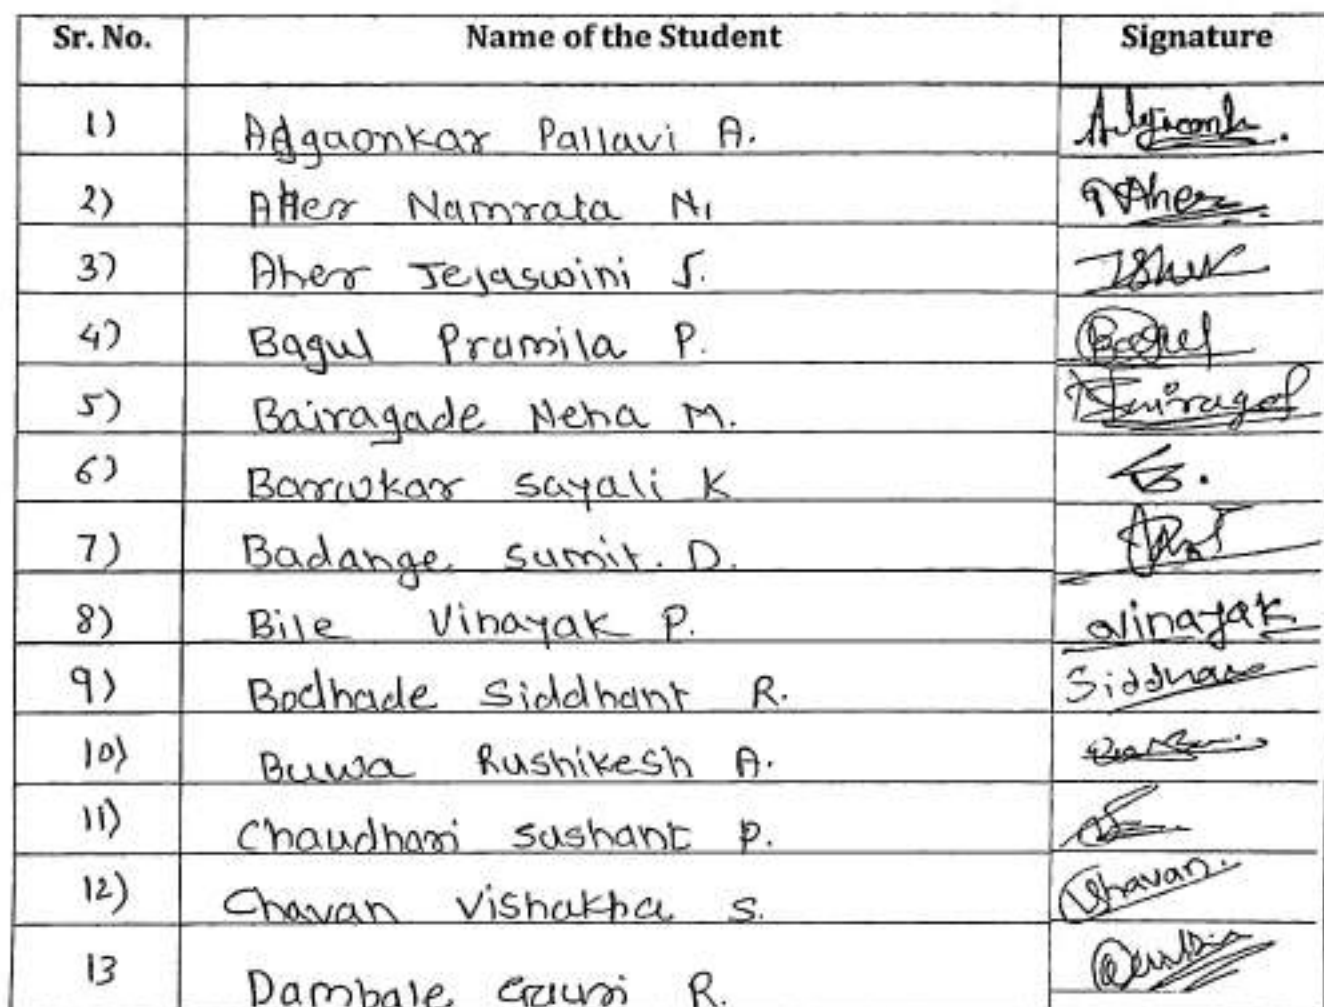 Sr. No. Name of the Student Signature
1) Adgaonkar Pallavi A.
2) Aher Namrata N. NAher
3) Aher Tejaswini S.
4) Bagul Pramila P. Bagul
5) Bairagade Neha M. NBairagad
6) Barwkar Sayali K
7) Badange Sumit. D.
8) Bile Vinayak P. Vinayak
9) Bodhade Siddhant R. Siddhant
10) Buwa Rushikesh A.
11) Chaudhari Sushant P.
12) Chavan Vishakha S. Chavan.
13 Dambale Gauri R.